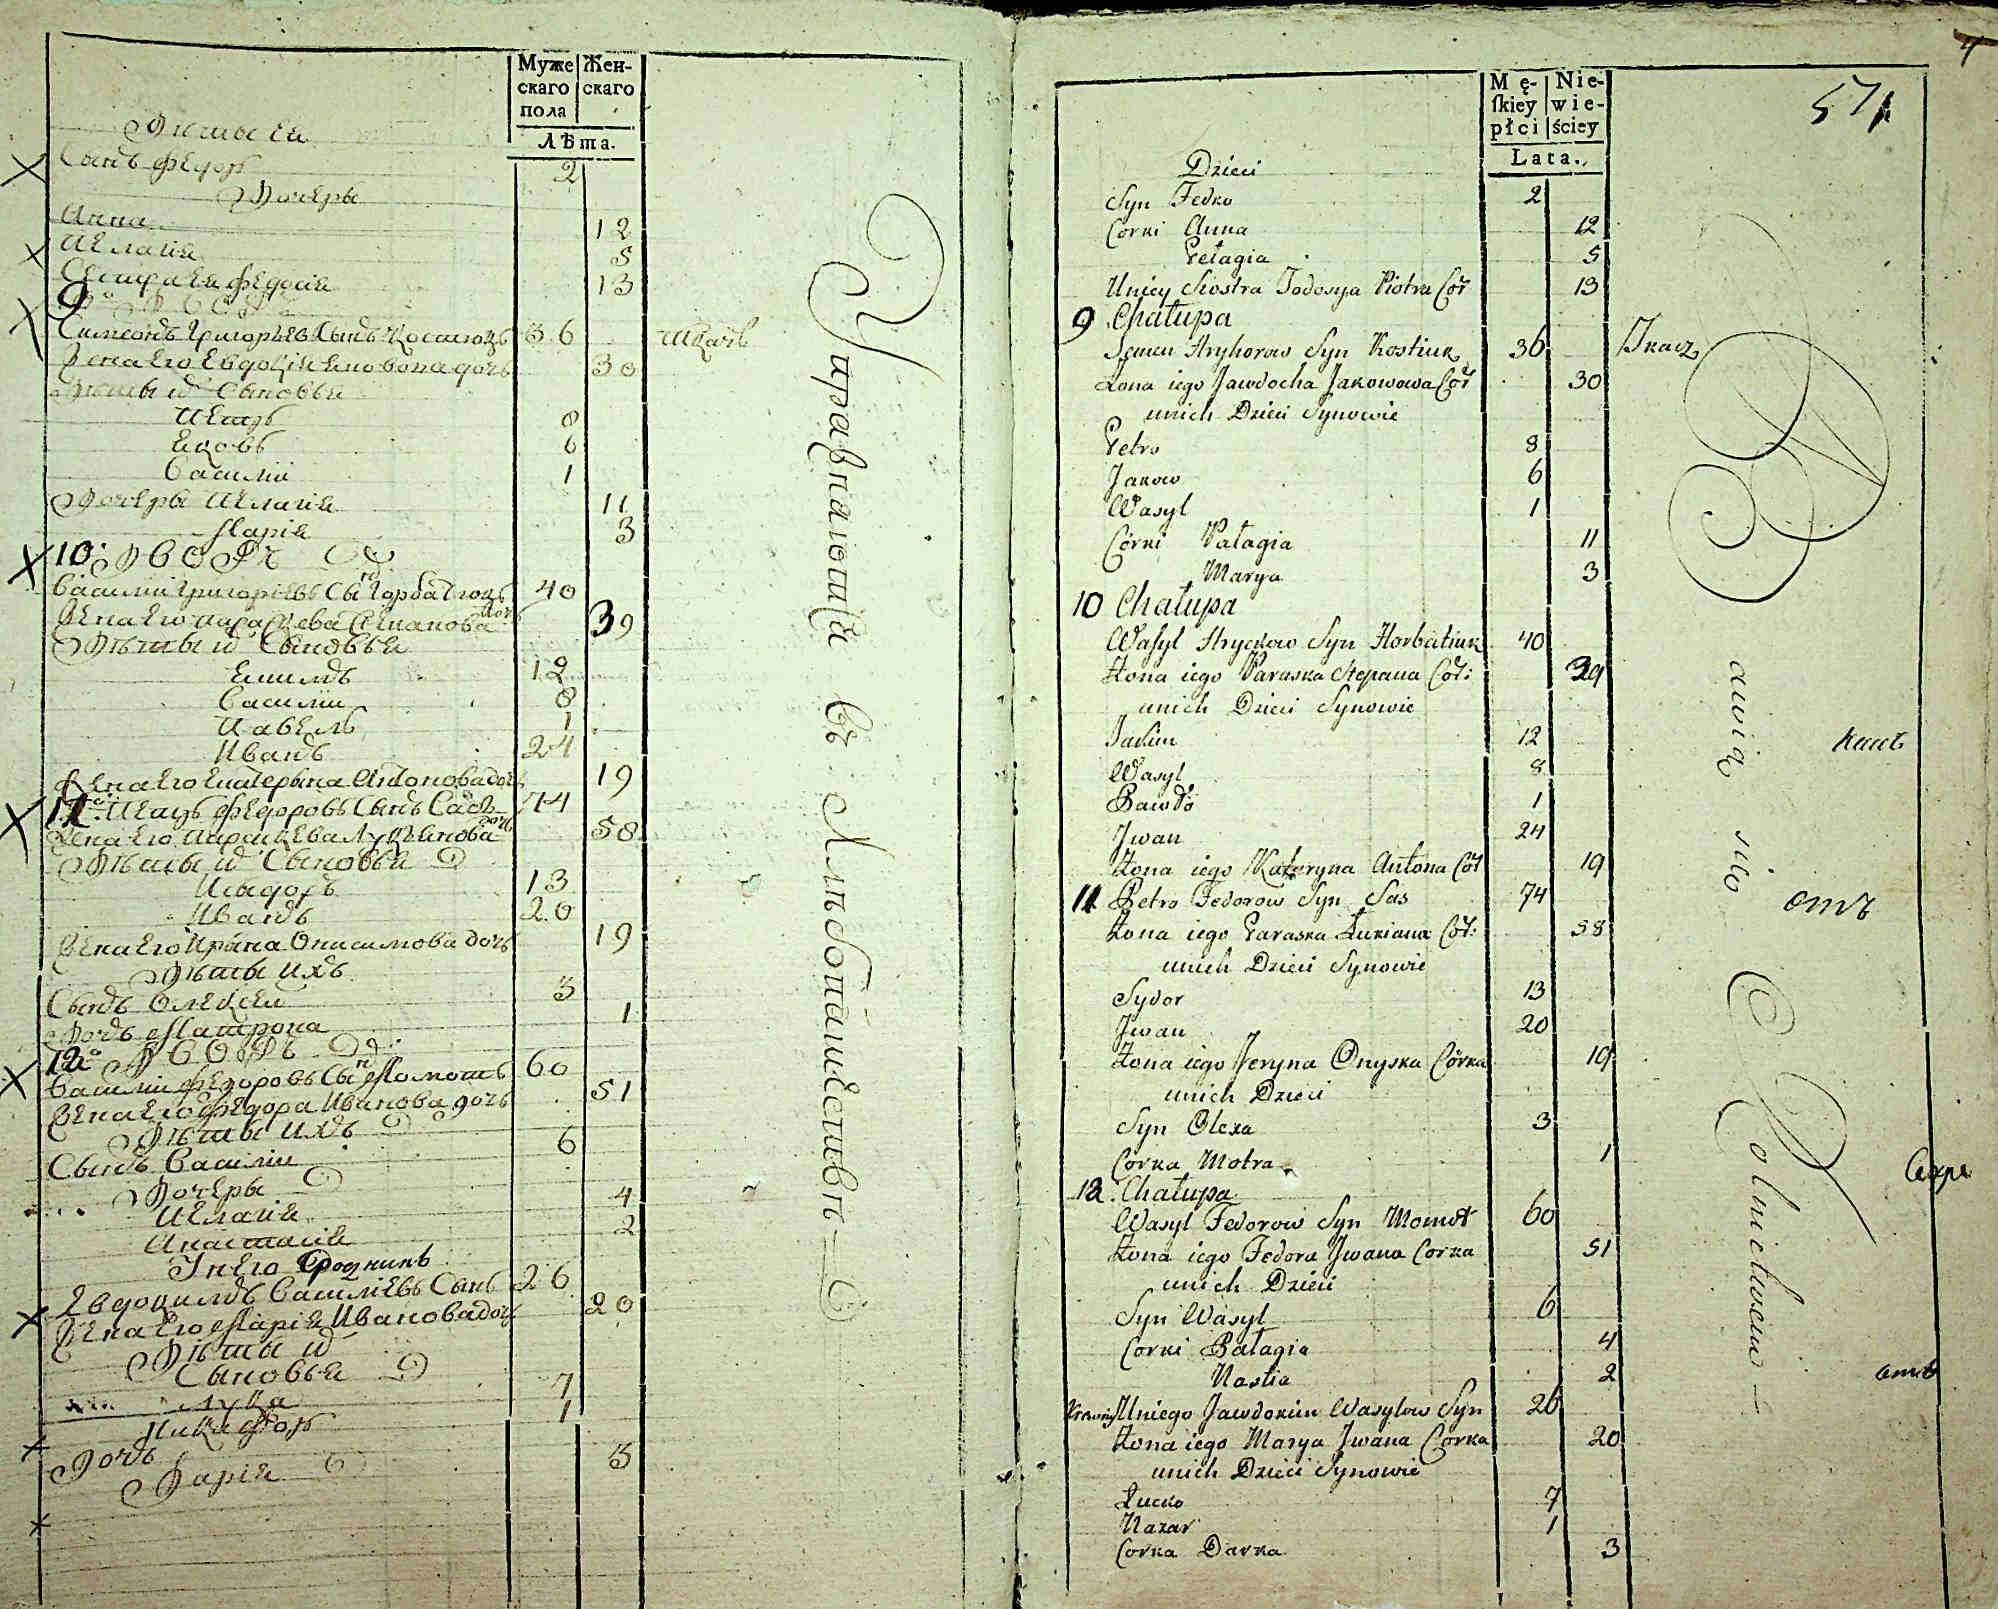 Муже
скаго
пола
Жен-
скаго
Лѣта.
Сынъ Федоръ 2
Дочеры
Анна 12
Пелагія 5
Сестра ея Федосія 13
9
Симеонъ Григорьевъ Сынъ Костюкъ 36 ткачь
Жена его Евдокія Яковова дочь 30
Дѣты ихъ Сыновья
Петръ 8
Яковъ 6
Василій 1
Дочеры Пелагія 11
Марія 3
10 Дворъ
Василій Григорьевъ Сынъ Горбатюкъ 40
Жена его Параскева Степанова дочь 39
Дѣты ихъ Сыновья
Екимъ 12
Василій 8
Павелъ 1
Иванъ 24
Жена его Екатерына Антонова дочь 19
11 Петръ Федоровъ Сынъ Сасъ 74
Жена его Параскева Лукьянова дочь 58
Дѣты ихъ Сыновья
Исыдоръ 13
Иванъ 20
Жена его Ирина Онисимова дочь 19
Дѣты ихъ
Сынъ Олексей 3
Дочь Матрона 1
12 Дворъ
Василій Федоровъ Сынъ Момотъ 60
Жена его Федора Иванова дочь 51
Дѣты ихъ
Сынъ Василій 6
Дочеры
Пелагія 4
Анастасія 2
У него
Евдокимъ Василіевъ Сынъ 26
Жена его Марія Иванова дочь 20
Дѣты ихъ
Сыновья
Лука 7
Никифоръ 1
Дочь
Дарія 3
Упражнаются въ Хлѣбопашествѣ
4
571
Mę-
skiey
płci
Nie-
wie-
ściey
Lata.
Dzieci
Syn Fedko 2
Corki Anna 12
Pelagia 5
Uniey Siostra Fodosya Piotra Cór 13
9 Chałupa
Semen Hryhorow Syn Kostiuk 36 Tkacz
Żona iego Jawdocha Jakowowa Cór 30
unich Dzieci Synowie
Petro 8
Jakow 6
Wasyl 1
Córki Pałagia 11
Marya 3
10 Chałupa
Wasyl Hryckow Syn Horbatiuk 40
Żona iego Paraska Stepana Cór: 39
unich Dzieci Synowie
Jakim 12
Wasyl 8
Pawło 1
Jwan 24
Żona iego Kateryna Antona Cór 19
11 Petro Fedorow Syn Sas 74
Żona iego Paraska Łukiana Cór: 58
unich Dzieci Synowie
Sydor 13
Jwan 20
Żona iego Jeryna Onyska Córka 19
unich Dzieci
Syn Olexa 3
Corka Motra 1
12. Chałupa
Wasyl Fedorow Syn Momot 60
Żona iego Fedora Jwana Corka 51
unich Dzieci
Syn Wasyl 6
Corki Pałagia 4
Nastia 2
Uniego Jawdokim Wasylow Syn 26
Żona iego Marya Jwana Corka 20
unich Dzieci Synowie
Łucko 7
Nazar 1
Corka Darka 3
Bawią się Rolnictwem